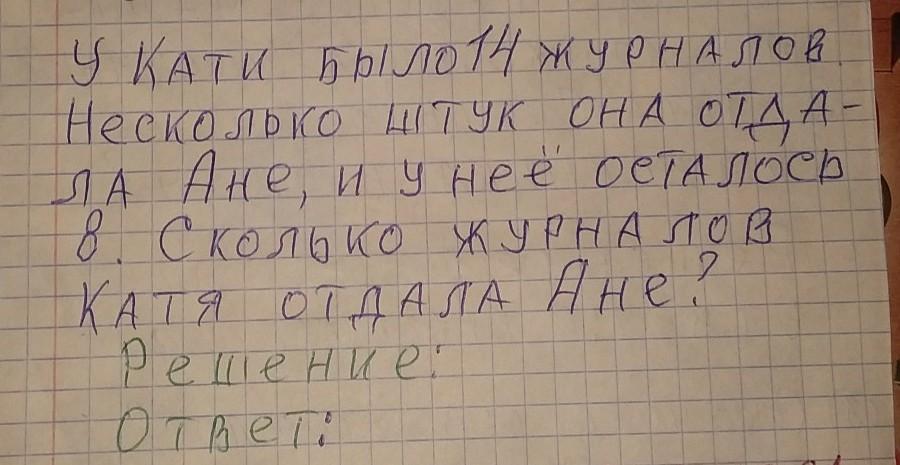 У Кати было 14 журналов.
Несколько штук она отда-
ла Ане, и у неё осталось
8. Сколько журналов
Катя отдала Ане?
Решение:
Ответ: